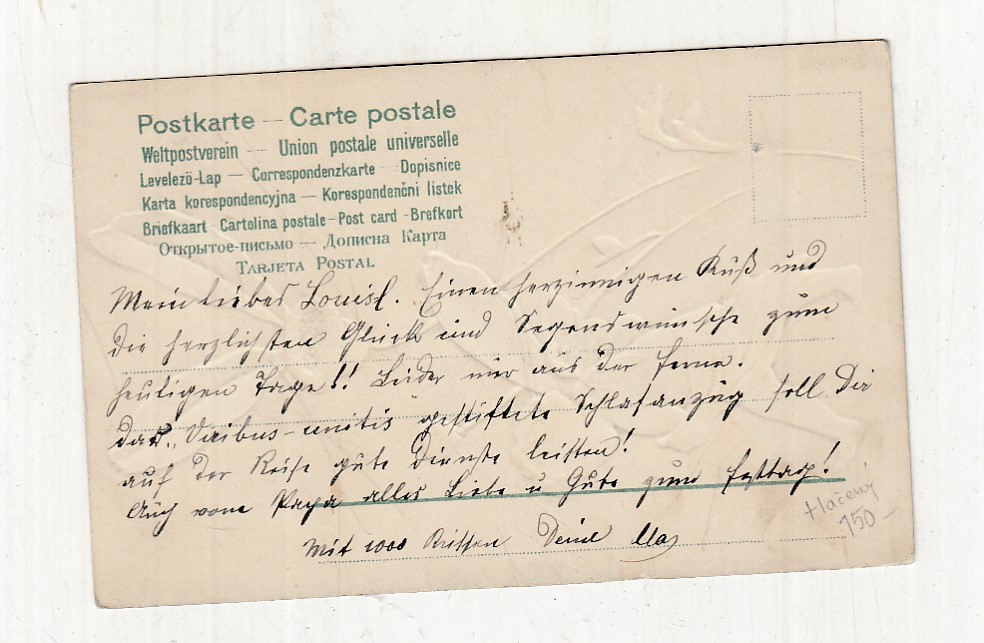 Postkarte — Carte postale
Weltpostverein — Union postale universelle
Levelező-Lap — Correspondenzkarte — Dopisnice
Karta korespondencyjna — Korespondenčni listek
Briefkaart - Cartolina postale - Post card - Brefkort
Открытое-письмо — Дописна Карта
Tarjeta Postal
Mein liebes Louisl. Einen herzinnigen Kuß und
die herzlichsten Glück und Segenswünsche zum
heutigen Tage!! Leider nur aus der Ferne.
Das „Viribus-unitis gestiftete Schlafanzug soll Dir
auf der Reise gute Dienste leisten!
Auch vom Papa alles Liebe u Gute zum Festtag!
Mit 1000 Küssen Deine Ma
tlačený
150-